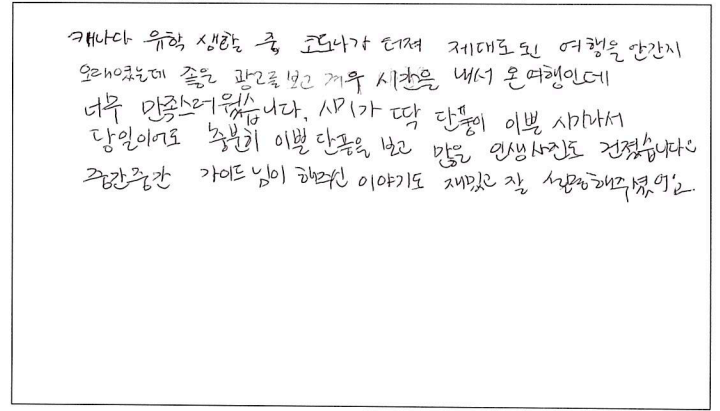 캐나다 유학 생활 중, 코로나가 터져 제대로된 여행을 안간지
오래였는데 좋은 광고를 보고 겨우 시간을 내서 온 여행인데
너무 만족스러웠습니다. 시기가 딱 단풍이 이쁠 시기라서
당일이어도 충분히 이쁜 단풍을 보고 많은 인생사진도 건졌습니다.
중간중간 가이드님이 해주신 이야기도 재밌고 잘 설명해주셨어요.